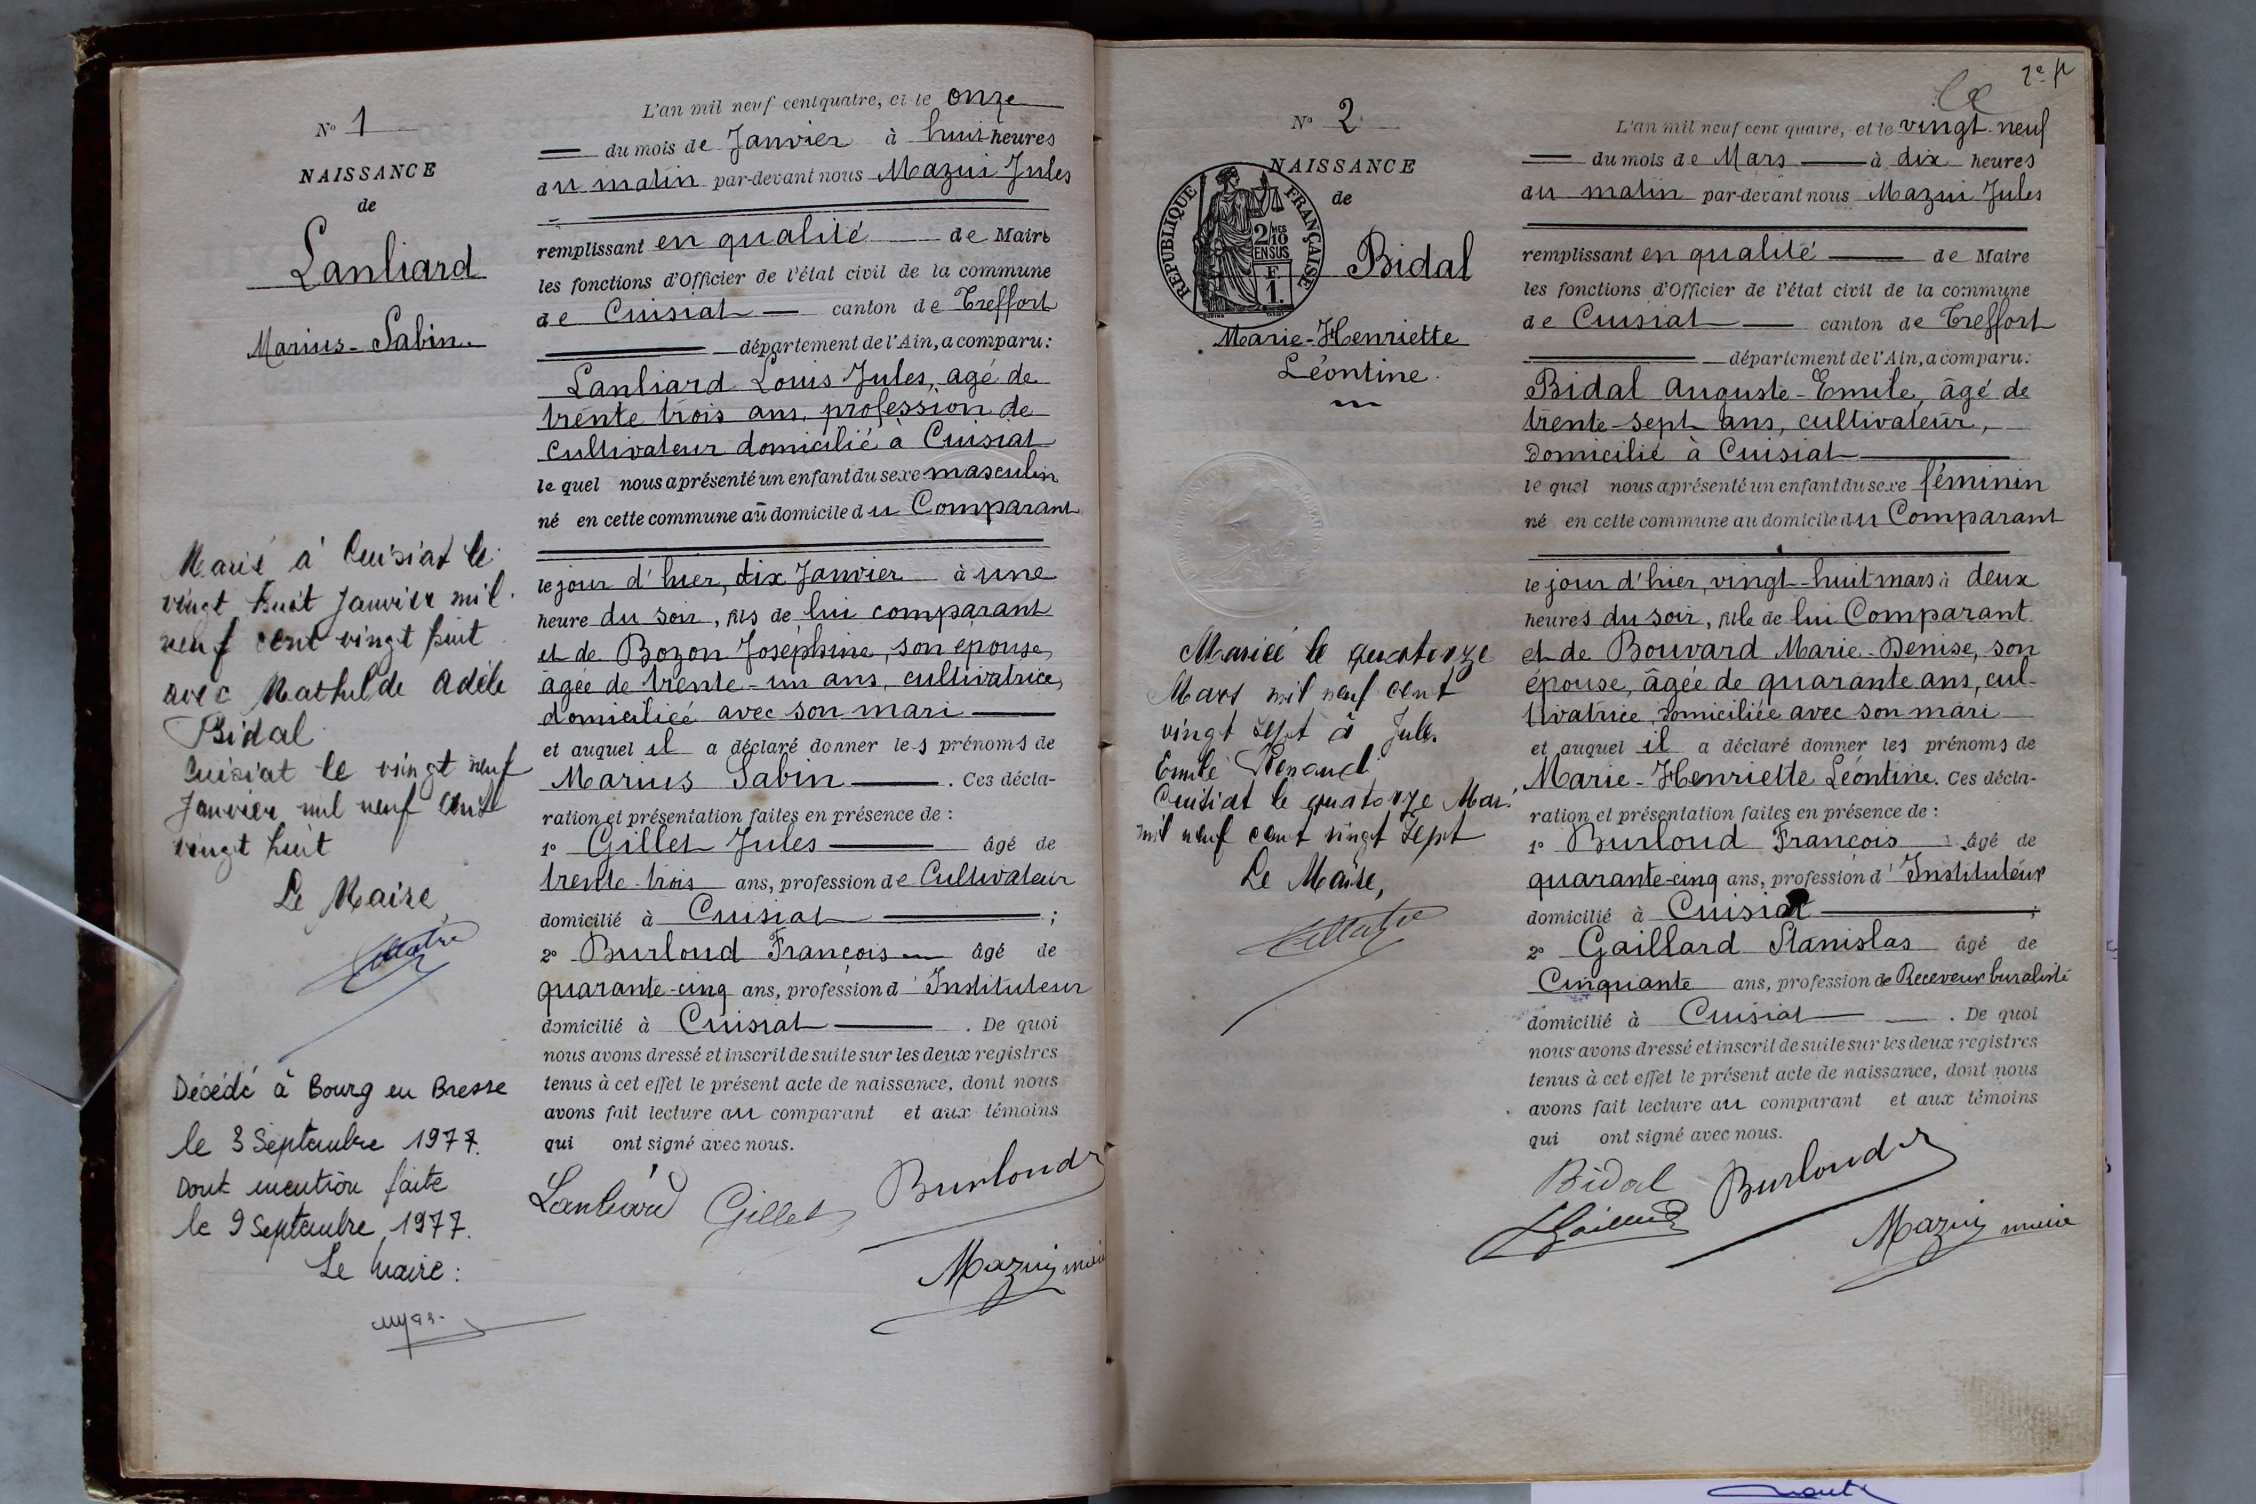 N° 1
NAISSANCE
de
Lanliard
Marius-Sabin.
Marié à Cuisiat le
vingt huit Janvier mil
neuf cent vingt huit
avec Mathilde Adèle
Bidal
Cuisiat le vingt neuf
Janvier mil neuf cent
vingt huit
Le Maire
Décédé à Bourg en Bresse
le 3 Septembre 1977.
Dont mention faite
le 9 Septembre 1977.
Le Maire :
L'an mil neuf cent quatre, et le onze
du mois de Janvier à huit heures
du matin par-devant nous Mazui Jules
remplissant en qualité de Maire
les fonctions d'Officier de l'état civil de la commune
de Cuisiat canton de Treffort
département de l'Ain, a comparu :
Lanliard Louis Jules, agé de
trente trois ans, profession de
Cultivateur domicilié à Cuisiat
le quel nous a présenté un enfant du sexe masculin
né en cette commune au domicile du Comparant
le jour d'hier, dix Janvier à une
heure du soir, fils de lui comparant
et de Bozon Joséphine, son épouse,
âgée de trente-un ans, cultivatrice,
domiciliée avec son mari
et auquel il a déclaré donner les prénoms de
Marius Sabin. Ces décla-
ration et présentation faites en présence de :
1° Gillet Jules âgé de
trente-trois ans, profession de Cultivateur
domicilié à Cuisiat ;
2° Burloud François âgé de
quarante-cinq ans, profession d'Instituteur
domicilié à Cuisiat. De quoi
nous avons dressé et inscrit de suite sur les deux registres
tenus à cet effet le présent acte de naissance, dont nous
avons fait lecture au comparant et aux témoins
qui ont signé avec nous.
Lanliard Gillet Burloud
Mazui maire
2e f
N° 2
NAISSANCE
de
RÉPUBLIQUE FRANÇAISE
2/10 MES
EN SUS
F.
1.
Bidal
Marie-Henriette
Léontine.
Mariée le quatorze
Mars mil neuf cent
vingt sept à Jules
Emile Renaud
Cuisiat le quatorze Mars
mil neuf cent vingt sept
Le Maire,
L'an mil neuf cent quatre, et le vingt-neuf
du mois de Mars à dix heures
du matin par-devant nous Mazui Jules
remplissant en qualité de Maire
les fonctions d'Officier de l'état civil de la commune
de Cuisiat canton de Treffort
département de l'Ain, a comparu :
Bidal Auguste-Emile, âgé de
trente-sept ans, cultivateur,
Domicilié à Cuisiat
le quel nous a présenté un enfant du sexe féminin
né en cette commune au domicile du Comparant
le jour d'hier, vingt-huit mars à deux
heures du soir, fille de lui Comparant
et de Bouvard Marie-Denise, son
épouse, âgée de quarante ans, cul-
tivatrice, domiciliée avec son mari
et auquel il a déclaré donner les prénoms de
Marie-Henriette Léontine. Ces décla-
ration et présentation faites en présence de :
1° Burloud François âgé de
quarante-cinq ans, profession d'Instituteur
domicilié à Cuisiat ;
2° Gaillard Stanislas âgé de
Cinquante ans, profession de Receveur buraliste
domicilié à Cuisiat. De quoi
nous avons dressé et inscrit de suite sur les deux registres
tenus à cet effet le présent acte de naissance, dont nous
avons fait lecture au comparant et aux témoins
qui ont signé avec nous.
Bidal Burloud
Gaillard
Mazui maire